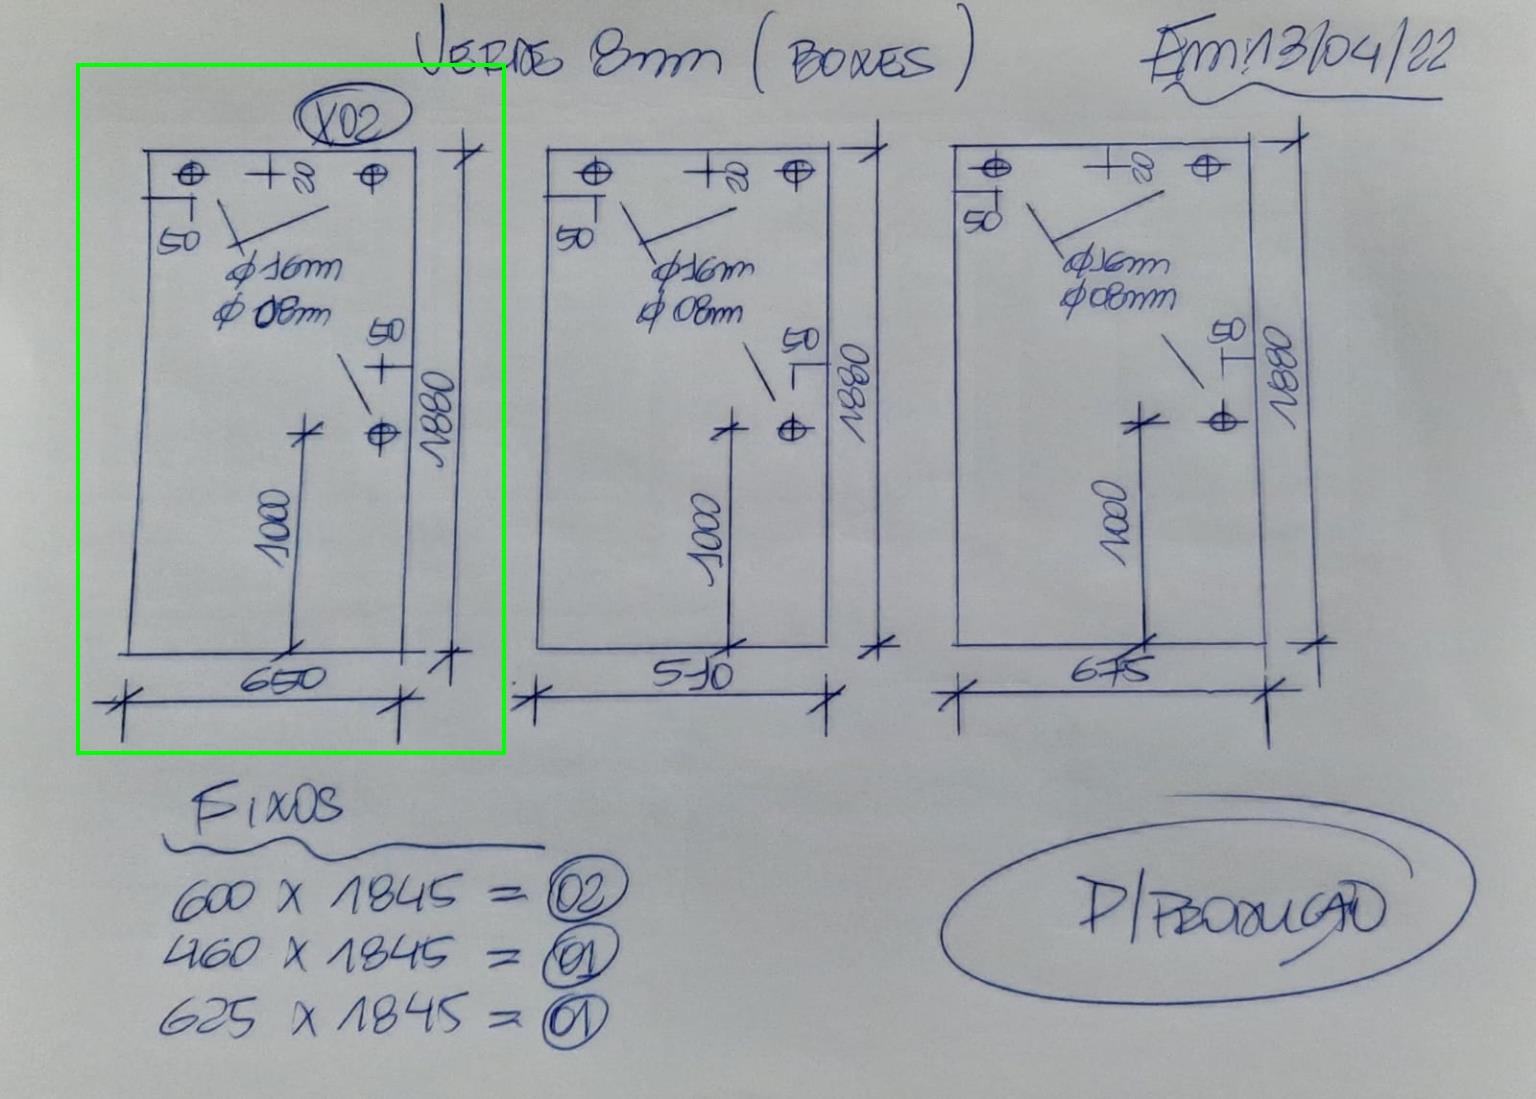 VERDE 8mm (BOXES) Em: 13/04/22
X02
20 20 20
50 50 50
Φ16mm Φ16mm Φ16mm
Φ08mm Φ08mm Φ08mm
50 50 50
1880 1880 1880
1000 1000 1000
650 510 675
FIXOS
600 X 1845 = 02
460 X 1845 = 01
625 X 1845 = 01
P/PRODUÇÃO